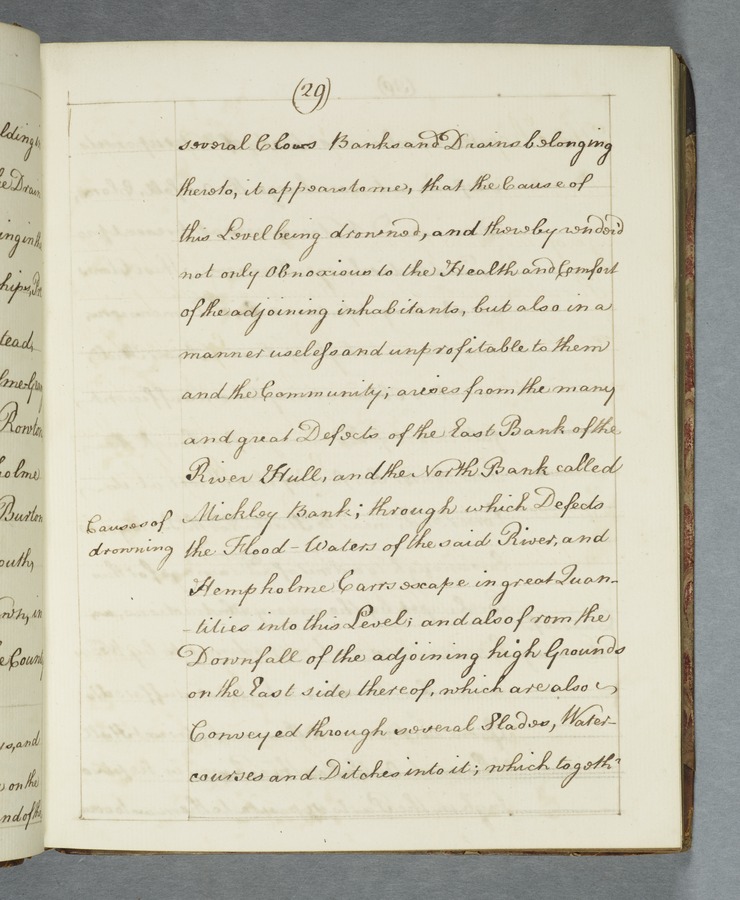 (29)
several Clows Banks and Drains belonging
thereto, it appears to me, that the Cause of
this Level being drowned, and thereby render'd
not only Obnoxious to the Health and Comfort
of the adjoining inhabitants, but also in a
manner useless and unprofitable to them
and the Community; arises from the many
and great Defects of the East Bank of the
River Hull, and the North Bank called
Mickley Bank; through which Defects
the Flood-Waters of the said River, and
Hempholme Carrs escape in great Quan-
-tities into this Level; and also from the
Downfall of the adjoining high Grounds
on the East side thereof, which are also
Conveyed through several Slades, Water-
courses and Ditches into it; which togethr
Causes of
drowning
lding
e Drain
ing in the
ships,
tead,
lme
Rowton
holme
Burton
outh,
in
e County
s, and
on the
nd of the